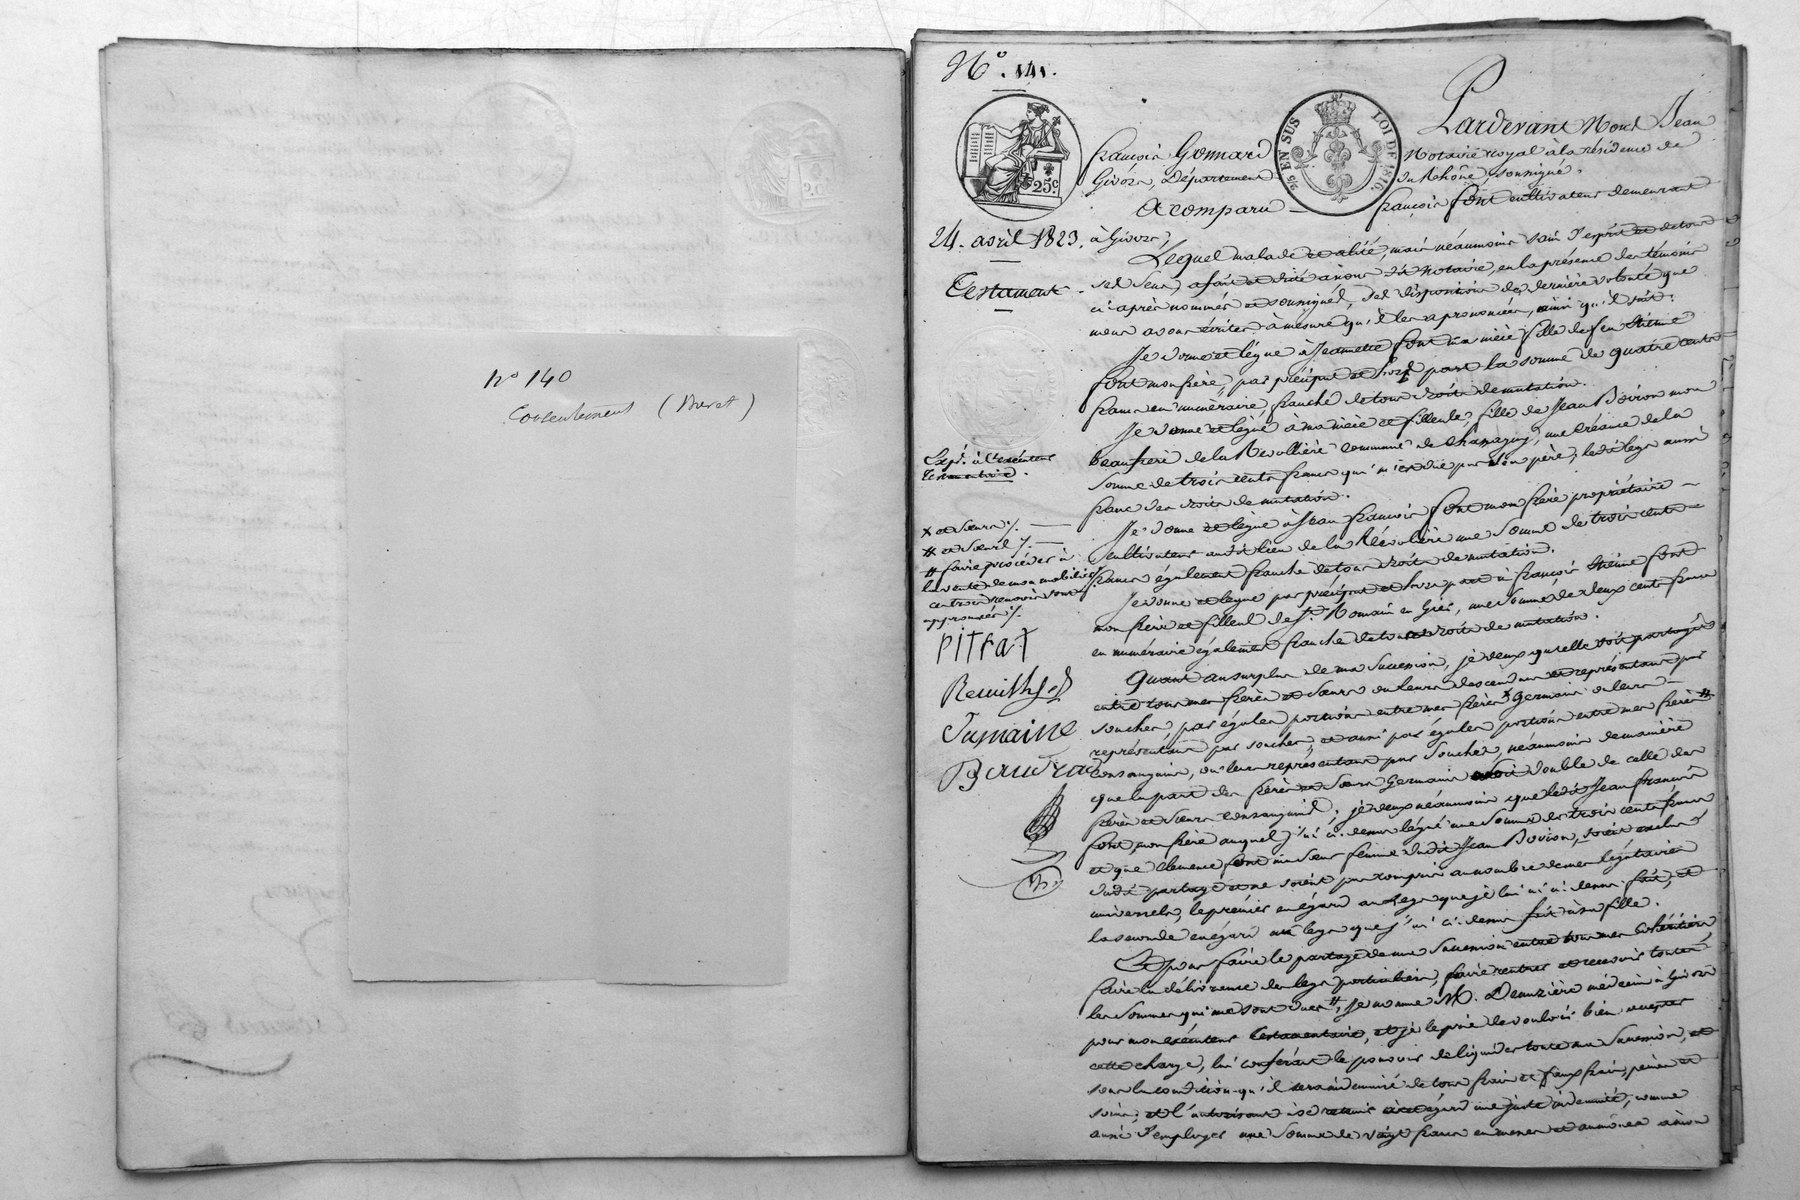 n° 140
Consentement (Neret)
N°. 141.
25c.
25 EN SUS
LOI DE 1816.
Pardevant Nous Jean
françois Gonnard Notaire royal à la résidence de
Givors, Département du Rhône, soussigné.
A comparu françois font cultivateur demeurant
24. avril 1823. à Givors,
Testament
Lequel malade et alité, mais néaumoins sain d'esprit et de tous
ses sens, a fait et dicté à nous dit notaire, en la présence des témoins
ci après nommés et soussignés, ses dispositions de dernière volonté que
nous avons écrites à mesure qu'il les a prononcées, ainsi qu'il suit.
Je donne et lègue à Jeannette font ma nièce fille de feu Etienne
font mon frère, par préciput et hors part la somme de quatre cents
francs en numéraire, franche de tous droits de mutation.
Je donne et lègue à ma nièce et filleule, fille de Jean Boiron mon
beaufrère de la Revollière commune de Chassagny, une créance de la
somme de trois cents francs qui m'est due par son père; ledit legs aussi
franc des droits de mutation.
Je donne et lègue à Jean françois font mon frère propriétaire
cultivateur audit lieu de la Révolière une somme de trois cents
francs également franche de tous droits de mutation.
Je donne et lègue par préciput et hors part à françois Etienne font
mon frère et filleul de St. Romain en Giers, une somme de deux cents francs
en numéraire également franche de tous droits de mutation.
Quant au surplus de ma succession, je veux qu'elle soit partagée
entre tous mes frères et sœurs ou leurs descendans et représentans par
souches, par égales portions entre mes frères Germains ou leurs
représentans par souches, et aussi par égales portions entre mes frères
consanguins, ou leurs représentans par souches, néaumoins de manière
que la part des frères et sœurs Germains soit double de celle des
frères et sœurs consanguins; je veux néaumoins que ledit Jean françois
font, mon frère auquel j'ai ci-dessus légué une somme de trois cents francs
et que Clémence font ma sœur femme dudit Jean Boiron, soient exclus
dudit partage et ne soient pas compris au nombre de mes légataires
universels, le premier en égard au legs que je lui ai ci-dessus fait, et
la seconde en égard au legs que j'ai ci-dessus fait à sa fille.
Et pour faire le partage de ma succession entre tous mes cohéritiers,
faire la délivrance des legs particuliers, faire rentrer et recevoir toutes
les sommes qui me sont dues, je nomme M. Demzière médecin à Givors
pour mon exécuteur testamentaire, et je le prie de vouloir bien accepter
cette charge, lui conférant le pouvoir de liquider toute ma succession, et
sous la condition qu'il sera indemnisé de tous frais et faux frais, peines et
soins, et l'autorisant à se retenir à cet égard une juste indemnité, comme
aussi d'employer une somme de vingt francs en messes et aumônes à mon
Exp. à l'exécuteur
testamentaire.
x et sœurs /.
# et sœurs /.
# faire procéder à
la vente de mon mobilier
ces trois renvois sont
approuvés /.
PITrAT
Jumaine